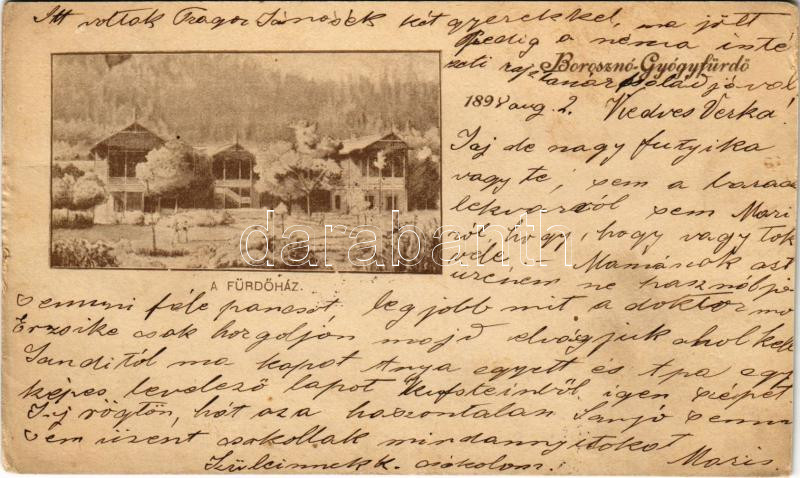 Itt voltak Tragor Jánosék két gyerekkel, ma jött
pedig a néma inté
zeti rajztanár családjával
Borosznó-Gyógyfürdő
1898 aug 2. Kedves Verka!
Jaj de nagy futyika
vagy te, sem a barack
lekvárról sem Mari
ról hogy, hogy vagytok
véle – Mamának azt
üzenem ne használjon
A FÜRDŐHÁZ.
semmi féle pancsot, legjobb mit a doktor mond
Erzsike csak horgoljon majd elvágjuk ahol kell
Sanditól ma kapot Anya egyett és Apa egy
képes levelező lapot Kufsteinből igen szépet
Írj rögtön, hát az a haszontalan Sanyó semmit
sem üzent csokollak mindannyitokat
csokolom. Maris
darabanth